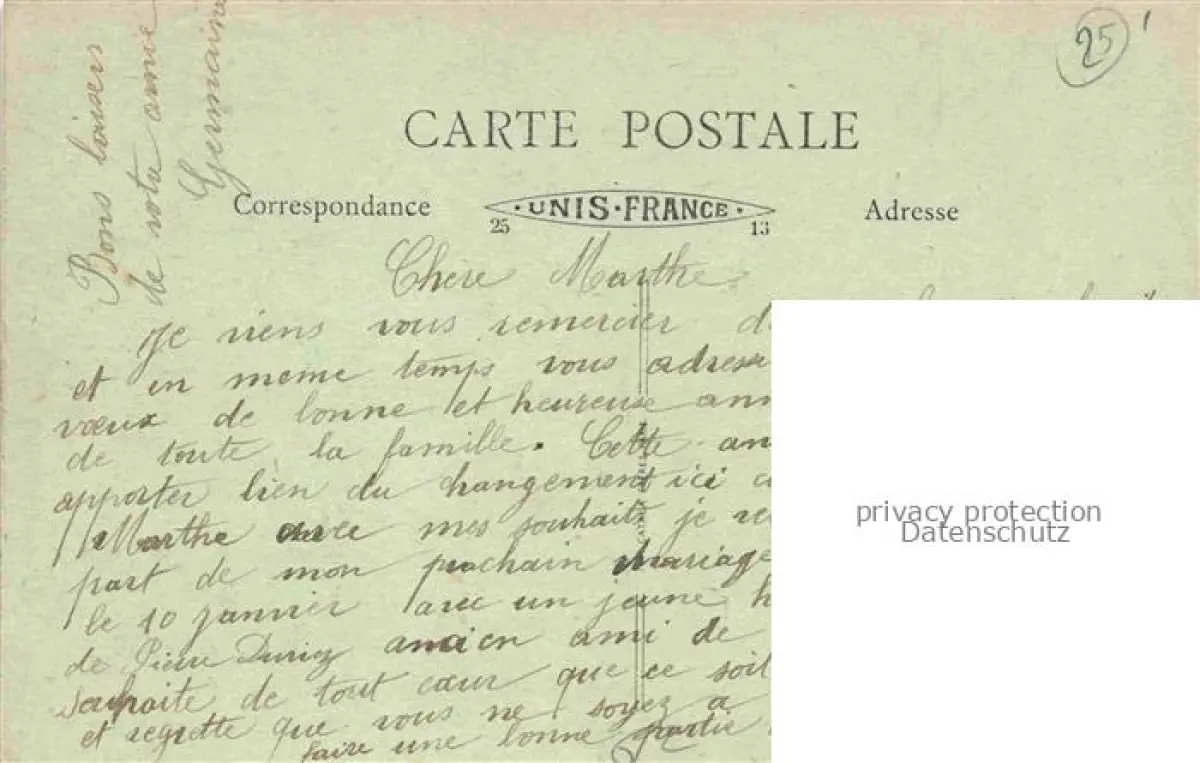 25
Bons baisers
de votre amie
Germaine
CARTE POSTALE
Correspondance
UNIS·FRANCE
25 13
Adresse
Chère Marthe
Je viens vous remercier
et en meme temps vous adress
vœux de bonne et heureuse ann
de toute la famille. Cette an
apporter bien du changement ici
Marthe avec mes souhaits je
part de mon prochain mariage
le 10 janvier avec un jeune h
de Pierre ancien ami de
souhaite de tout cœur que ce soit
et regrette que vous ne soyez a
faire une bonne partie
privacy protection
Datenschutz